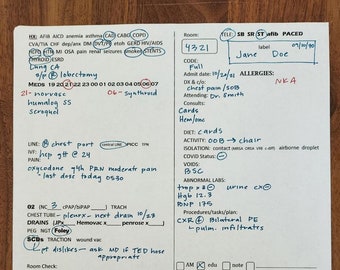 HX: AFIB AICD anemia asthma CAD CABG COPD
CVA/TIA CHF dep/anx DM DVT/PE etoh GERD HIV/AIDS
HTN MI OSA pain renal seizures smoker STENTS
THYROID ESRD
Lung CA
s/p R lobectomy
MEDS 18 19 20 21 22 23 24 01 02 03 04 05 06 07
21- norvasc 06- synthroid
humalog SS
seroquel
LINE: R chest port central line PICC TPN
IVF: hep gtt @ 24
PAIN:
oxycodone q4h PRN moderate pain
- last dose today 0530
O2 INC 3 cPAP/biPAP TRACH
CHEST TUBE - pleurx - next drain 10/23
DRAINS JPx Hemovac or penrose
PEG NGT Foley
SCDs TRACTION wound vac
pt dislikes - ask MD if TED hose
appropriate
Room Check:
Room: TELE: SB SR/ST afib PACED
4321
label 09/10/40
Jane Doe
CODE:
Full
ALLERGIES:
Admit date: 10/20/21
NKA
DX & c/o:
chest pain/SOB
Attending: Dr. Smith
Consults:
Cards
Hem/onc
DIET: cards
ACTIVITY: OOB → chair
ISOLATION: contact airborne droplet
COVID Status -
VOIDS:
BSC
ABNORMAL LABS:
trop x3 - urine cx -
Hgb 12.3
BNP 175
Procedures/tasks/plan:
CXR + Bilateral PE
pulm. infiltrates
AM edu note